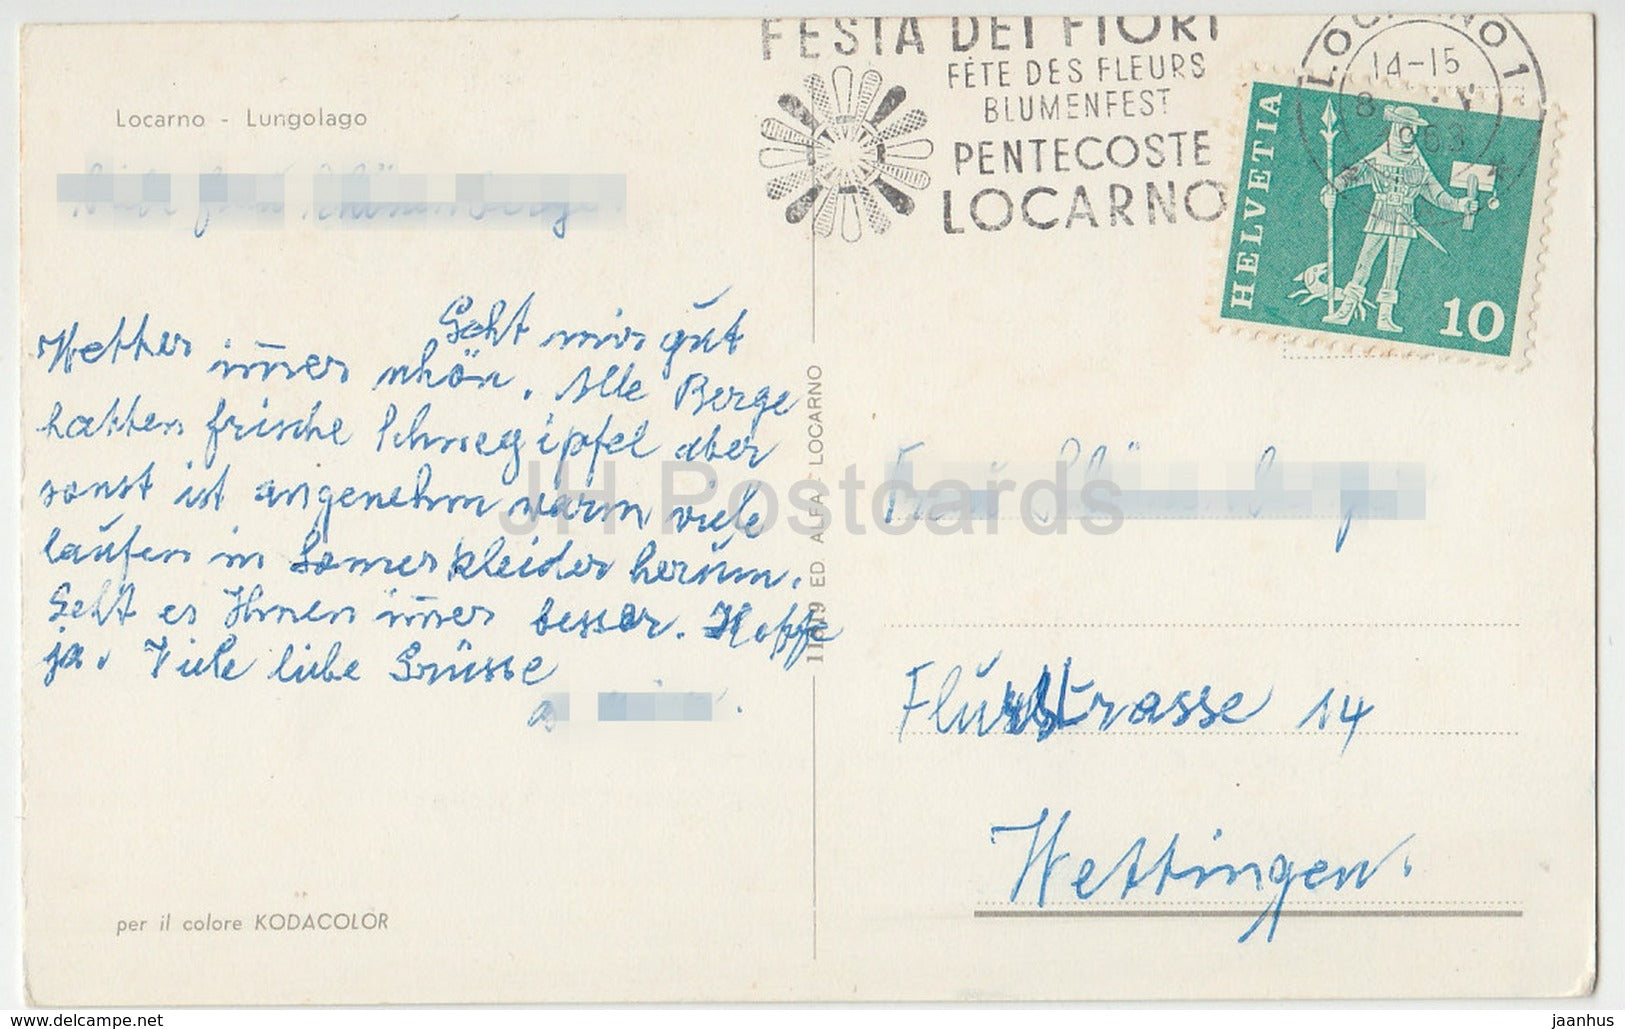 FESTA DEI FIORI
FÊTE DES FLEURS
BLUMENFEST
PENTECOSTE
LOCARNO
LOCARNO 1
14-15
8. V
1963
HELVETIA
10
Locarno - Lungolago
Geht mir gut
Wetter immer schön. Alle Berge
hatten frische Schneegipfel aber
sonst ist angenehm warm viele
laufen in Somerkleider herum.
Geht es Ihnen immer besser. Hoffe
ja. Viele liebe Grüsse
per il colore KODACOLOR
ED. ALFA - LOCARNO
Frau
Flurstrasse 14
Wettingen.
JH Postcards
www.delcampe.net
jaanhus